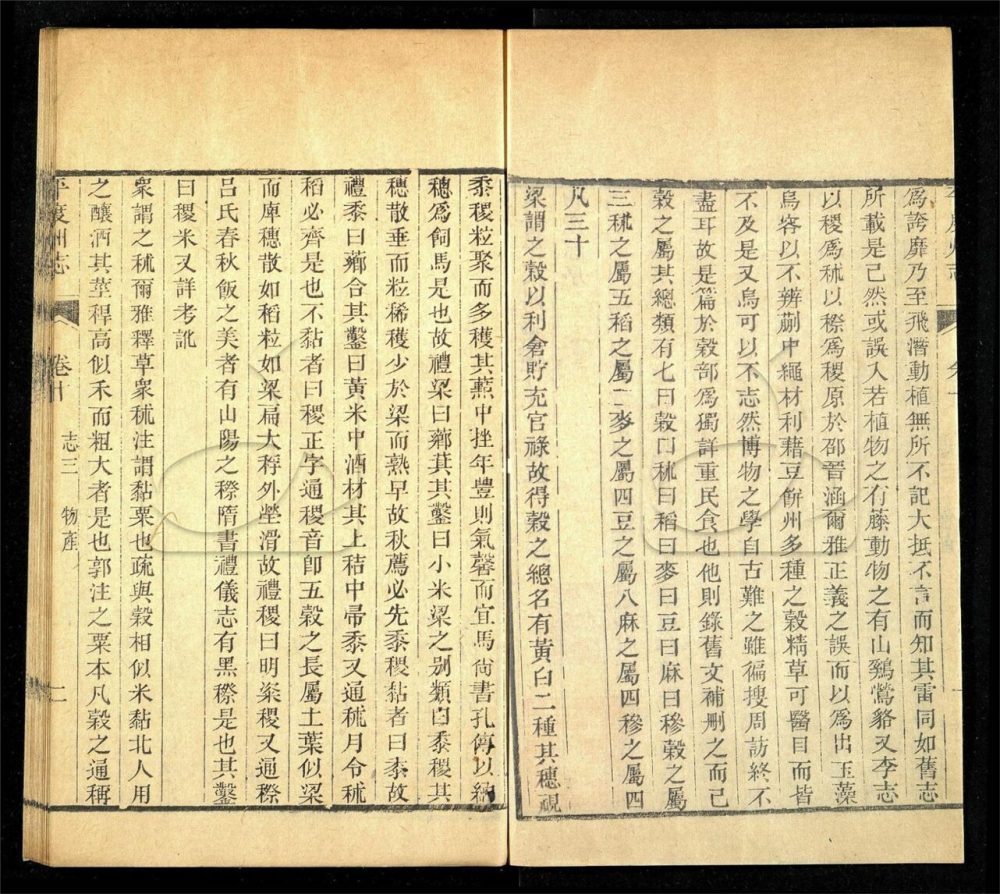 爲誇靡乃至飛潛動植無所不記大抵不言而知其雷同如舊志
所載是已然或誤入若植物之有藤動物之有山鷄鶯貉又李志
以稷爲秫以穄爲稷原於邵晉涵爾雅正義之誤而以爲出玉藻
烏容以不辨蒯中繩材利藉豆餅州多種之穀精草可醫目而皆
不及是又烏可以不志然博物之學自古難之雖徧搜周訪終不
盡耳故是篇於穀部爲獨詳重民食也他則錄舊文補刪之而已
穀之屬其總類有七曰穀曰秫曰稻曰麥曰豆曰麻曰穇穀之屬
三秫之屬五稻之屬二麥之屬四豆之屬八麻之屬四穇之屬四
凡三十
粱謂之穀以利倉貯充官祿故得穀之總名有黃白二種其穗視
黍稷粒聚而多穫其䕸中挫年豐則氣馨而宜馬尙書孔傳以
穗爲飼馬是也故禮粱曰薌萁其鑿曰小米粱之別類曰黍稷其
穗散垂而粒稀穫少於粱而熟早故秋薦必先黍稷黏者曰黍故
禮黍曰薌合其鑿曰黃米中酒材其上秸中帚黍又通秫月令秫
稻必齊是也不黏者曰稷正字通稷音卽五穀之長屬土葉似粱
而庳穗散如稻粒如粱扁大稃外瑩滑故禮稷曰明粢稷又通穄
呂氏春秋飯之美者有山陽之穄隋書禮儀志有黑穄是也其鑿
曰稷米又詳考訛
衆謂之秫爾雅釋草衆秫注謂黏粟也疏與穀相似米黏北人用
之釀酒其莖稈高似禾而粗大者是也郭注之粟本凡穀之通稱
平度州志
卷十
志三
物產
二